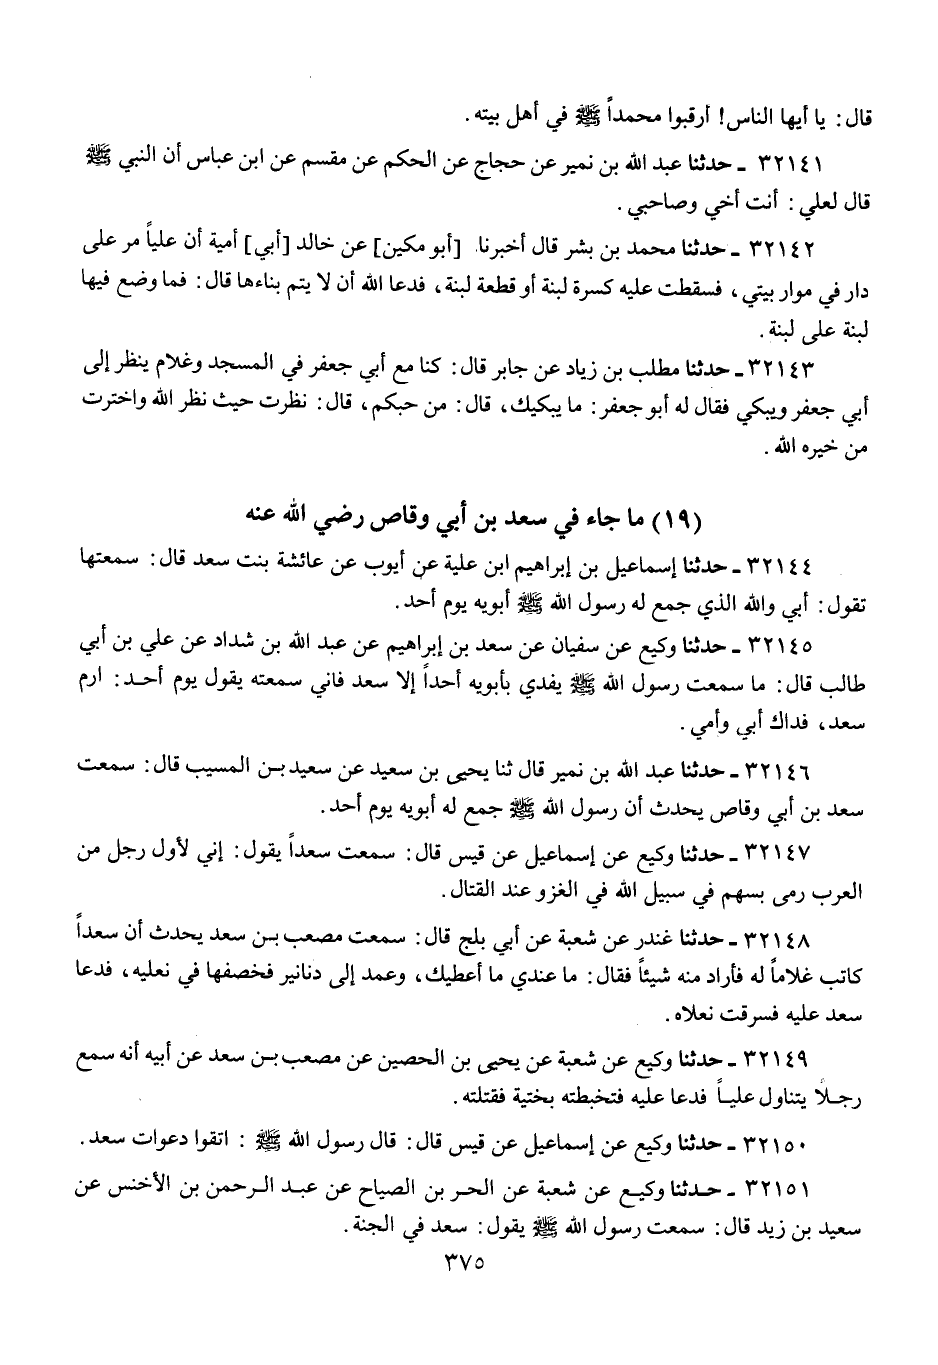 قال: يا أيها الناس! أرقبوا محمداً ﷺ في أهل بيته.
٣٢١٤١ ـ حدثنا عبد الله بن نمير عن حجاج عن الحكم عن مقسم عن ابن عباس أن النبي ﷺ
قال لعلي: أنت أخي وصاحبي.
٣٢١٤٢ ـ حدثنا محمد بن بشر قال أخبرنا [أبو مكين] عن خالد [أبي] أمية أن علياً مر على
دار في موار بيتي، فسقطت عليه كسرة لبنة أو قطعة لبنة، فدعا الله أن لا يتم بناءها قال: فما وضع فيها
لبنة على لبنة.
٣٢١٤٣ ـ حدثنا مطلب بن زياد عن جابر قال: كنا مع أبي جعفر في المسجد وغلام ينظر إلى
أبي جعفر ويبكي فقال له أبو جعفر: ما يبكيك، قال: من حبكم، قال: نظرت حيث نظر الله واخترت
من خيره الله.
(١٩) ما جاء في سعد بن أبي وقاص رضي الله عنه
٣٢١٤٤ ـ حدثنا إسماعيل بن إبراهيم ابن علية عن أيوب عن عائشة بنت سعد قال: سمعتها
تقول: أبي والله الذي جمع له رسول الله ﷺ أبويه يوم أحد.
٣٢١٤٥ ـ حدثنا وكيع عن سفيان عن سعد بن إبراهيم عن عبد الله بن شداد عن علي بن أبي
طالب قال: ما سمعت رسول الله ﷺ يفدي بأبويه أحداً إلا سعد فاني سمعته يقول يوم أحد: ارم
سعد، فداك أبي وأمي.
٣٢١٤٦ ـ حدثنا عبد الله بن نمير قال ثنا يحيى بن سعيد عن سعيد بن المسيب قال: سمعت
سعد بن أبي وقاص يحدث أن رسول الله ﷺ جمع له أبويه يوم أحد.
٣٢١٤٧ ـ حدثنا وكيع عن إسماعيل عن قيس قال: سمعت سعداً يقول: إني لأول رجل من
العرب رمى بسهم في سبيل الله في الغزو عند القتال.
٣٢١٤٨ ـ حدثنا غندر عن شعبة عن أبي بلج قال: سمعت مصعب بن سعد يحدث أن سعداً
كاتب غلاماً له فأراد منه شيئاً فقال: ما عندي ما أعطيك، وعمد إلى دنانير فخصفها في نعليه، فدعا
سعد عليه فسرقت نعلاه.
٣٢١٤٩ ـ حدثنا وكيع عن شعبة عن يحيى بن الحصين عن مصعب بن سعد عن أبيه أنه سمع
رجلاً يتناول علياً فدعا عليه فتخبطته بختية فقتلته.
٣٢١٥٠ ـ حدثنا وكيع عن إسماعيل عن قيس قال: قال رسول الله ﷺ : اتقوا دعوات سعد.
٣٢١٥١ ـ حدثنا وكيع عن شعبة عن الحر بن الصياح عن عبد الرحمن بن الأخنس عن
سعيد بن زيد قال: سمعت رسول الله ﷺ يقول: سعد في الجنة.
٣٧٥